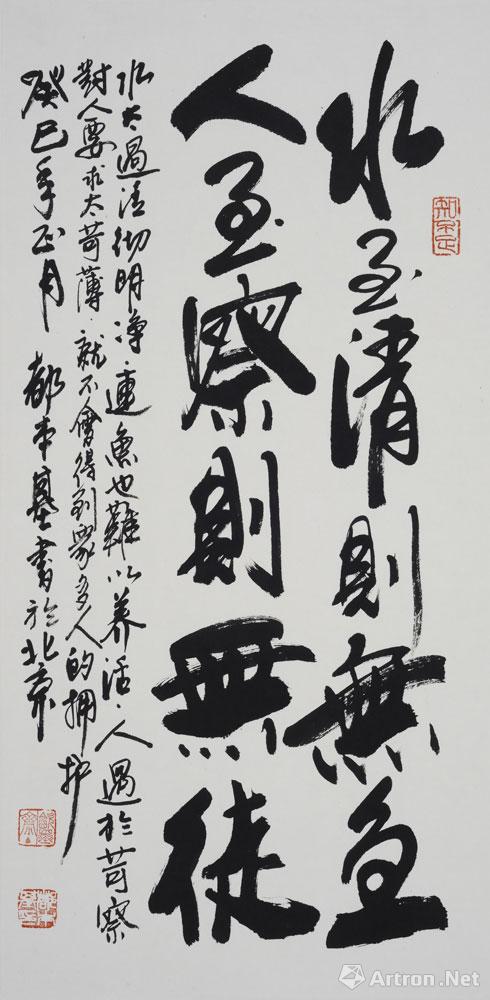 水至清則無魚
人至察則無徒
水太過清彻明淨連魚也難以养活人過於苛察
對人要求太苛薄就不會得到眾多人的拥护
癸巳年正月 都本基書於北京
知不足
Artron.Net